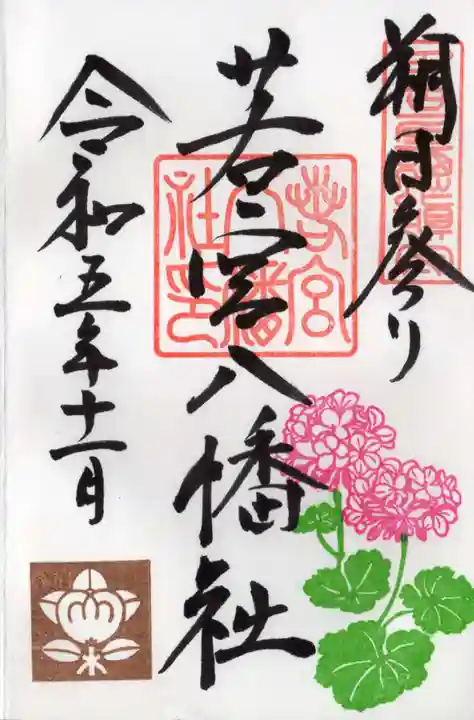 朔日参り
若宮八幡社
令和五年十一月
若宮八幡社印